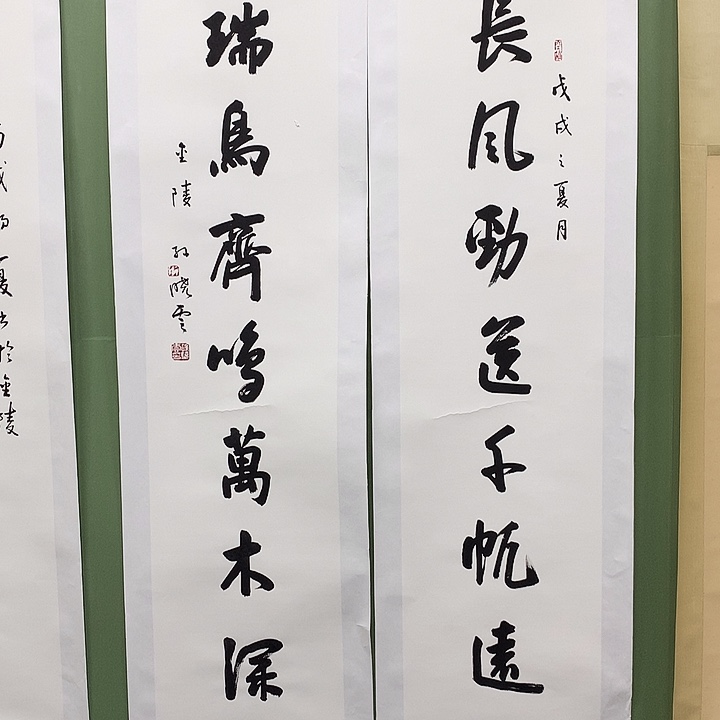 戊戌之夏月
長風勁送千帆遠
瑞鳥齊鳴萬木深
金陵 孙晓雲
夏书於金陵